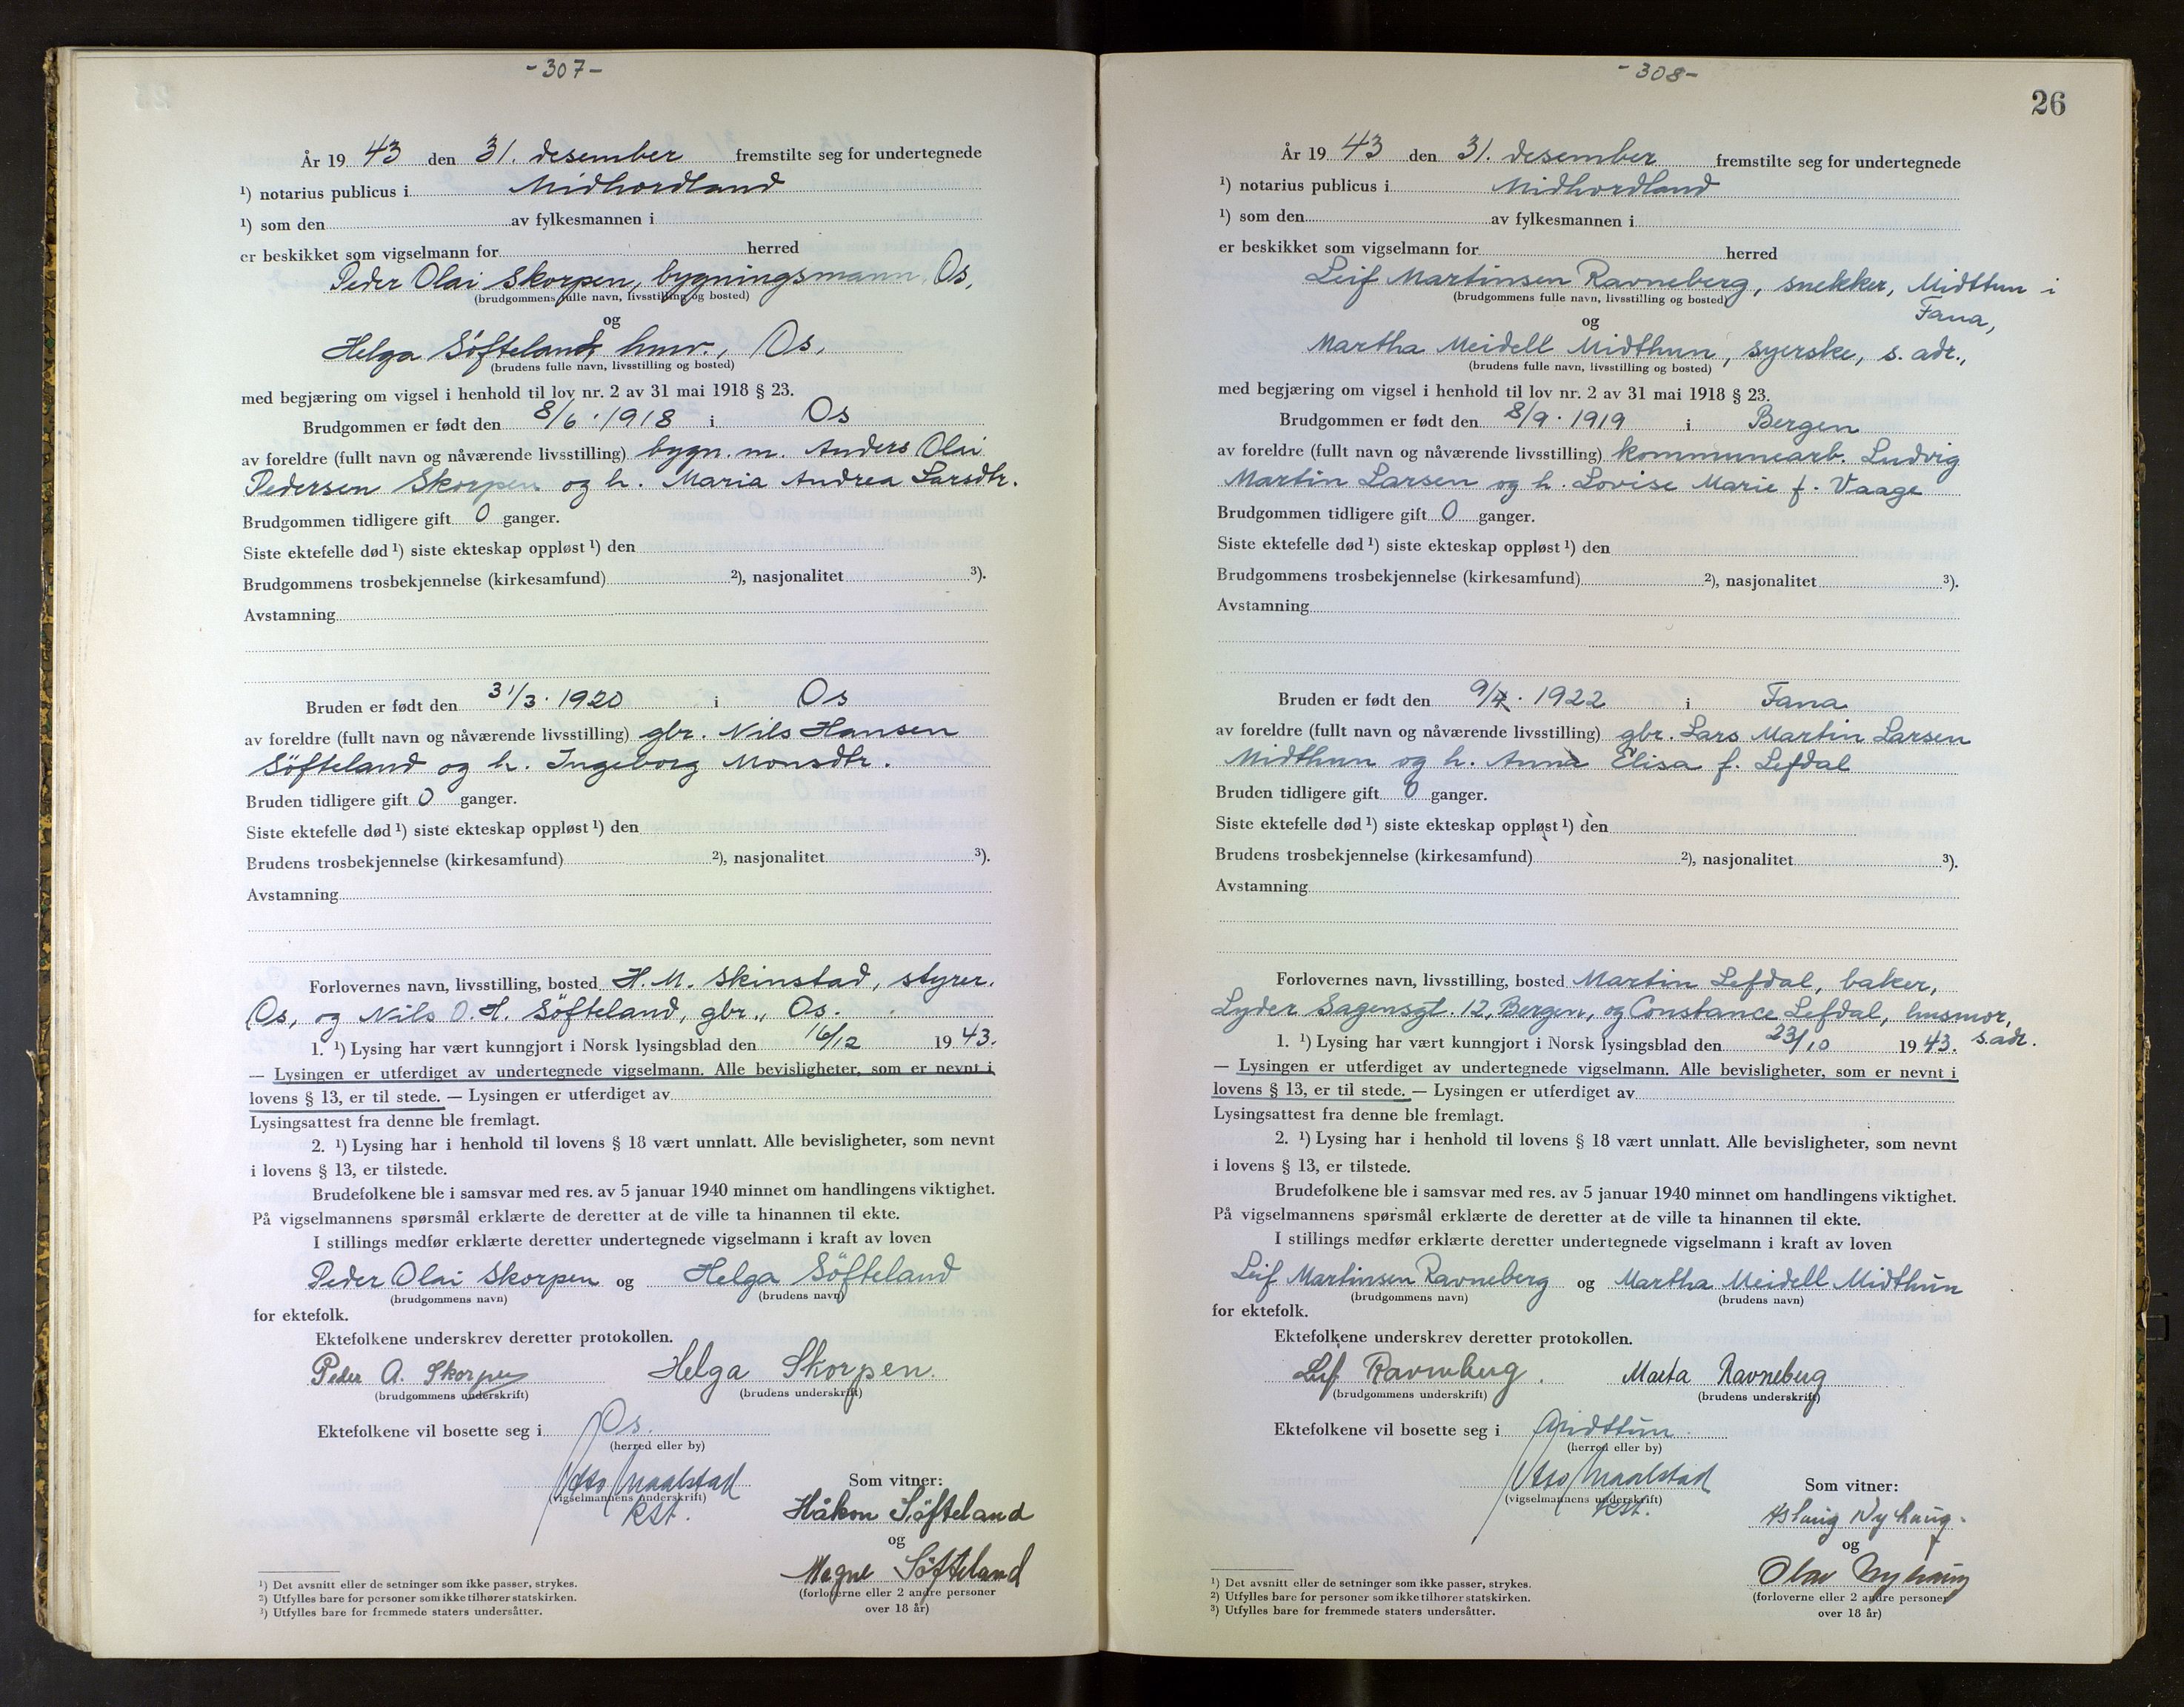 -307-
År 19 43 den 31. desember fremstilte seg for undertegnede
¹) notarius publicus i Midhordland
¹) som den av fylkesmannen i
er beskikket som vigselmann for herred
Peder Olai Skorpen, bygningsmann, Os,
(brudgommens fulle navn, livsstilling og bosted)
og
Helga Söfteland, hmv., Os,
(brudens fulle navn, livsstilling og bosted)
med begjæring om vigsel i henhold til lov nr. 2 av 31 mai 1918 § 23.
Brudgommen er født den 8/6. 1918 i Os
av foreldre (fullt navn og nåværende livsstilling) bygn. m. Anders Olai
Pedersen Skorpen og h. Maria Andrea Larsdtr.
Brudgommen tidligere gift 0 ganger.
Siste ektefelle død ¹) siste ekteskap oppløst ¹) den
Brudgommens trosbekjennelse (kirkesamfund) ²), nasjonalitet ³).
Avstamning
Bruden er født den 31/3. 1920 i Os
av foreldre (fullt navn og nåværende livsstilling) gbr. Nils Hansen
Söfteland og h. Ingeborg Monsdtr.
Bruden tidligere gift 0 ganger.
Siste ektefelle død ¹) siste ekteskap oppløst ¹) den
Brudens trosbekjennelse (kirkesamfund) ²), nasjonalitet ³).
Avstamning
Forlovernes navn, livsstilling, bosted H. M. Skinstad, styrer.
Os, og Nils O. H. Söfteland, gbr., Os.
1. ¹) Lysing har vært kunngjort i Norsk lysingsblad den 16/12 19 43.
— Lysingen er utferdiget av undertegnede vigselmann. Alle bevisligheter, som er nevnt i
lovens § 13, er til stede. — Lysingen er utferdiget av
Lysingsattest fra denne ble fremlagt.
2. ¹) Lysing har i henhold til lovens § 18 vært unnlatt. Alle bevisligheter, som nevnt
i lovens § 13, er tilstede.
Brudefolkene ble i samsvar med res. av 5 januar 1940 minnet om handlingens viktighet.
På vigselmannens spørsmål erklærte de deretter at de ville ta hinannen til ekte.
I stillings medfør erklærte deretter undertegnede vigselmann i kraft av loven
Peder Olai Skorpen og Helga Söfteland
(brudgommens navn) (brudens navn)
for ektefolk.
Ektefolkene underskrev deretter protokollen.
Peder A. Skorpen Helga Skorpen.
(brudgommens underskrift) (brudens underskrift)
Ektefolkene vil bosette seg i Os.
(herred eller by)
Otto Maalstad
(vigselmannens underskrift)
kst.
Som vitner:
Håkon Söfteland
og
Magne Söfteland
(forloverne eller 2 andre personer
over 18 år)
¹) Det avsnitt eller de setninger som ikke passer, strykes.
²) Utfylles bare for personer som ikke tilhører statskirken.
³) Utfylles bare for fremmede staters undersåtter.
-308-
26
År 19 43 den 31. desember fremstilte seg for undertegnede
¹) notarius publicus i Midhordland
¹) som den av fylkesmannen i
er beskikket som vigselmann for herred
Leif Martinsen Ravneberg, snekker, Midttun i
(brudgommens fulle navn, livsstilling og bosted)
Fana,
og
Martha Meidell Midthun, syerske, s. adr.,
(brudens fulle navn, livsstilling og bosted)
med begjæring om vigsel i henhold til lov nr. 2 av 31 mai 1918 § 23.
Brudgommen er født den 8/9. 1919 i Bergen
av foreldre (fullt navn og nåværende livsstilling) kommunearb. Ludvig
Martin Larsen og h. Lovise Marie f. Vaage
Brudgommen tidligere gift 0 ganger.
Siste ektefelle død ¹) siste ekteskap oppløst ¹) den
Brudgommens trosbekjennelse (kirkesamfund) ²), nasjonalitet ³).
Avstamning
Bruden er født den 9/4. 1922 i Fana
av foreldre (fullt navn og nåværende livsstilling) gbr. Lars Martin Larsen
Midthun og h. Anna Elisa f. Lefdal
Bruden tidligere gift 0 ganger.
Siste ektefelle død ¹) siste ekteskap oppløst ¹) den
Brudens trosbekjennelse (kirkesamfund) ²), nasjonalitet ³).
Avstamning
Forlovernes navn, livsstilling, bosted Martin Lefdal, baker,
Lyder Sagensgt. 12, Bergen, og Constance Lefdal, husmor,
s. adr.
1. ¹) Lysing har vært kunngjort i Norsk lysingsblad den 23/10 19 43.
— Lysingen er utferdiget av undertegnede vigselmann. Alle bevisligheter, som er nevnt i
lovens § 13, er til stede. — Lysingen er utferdiget av
Lysingsattest fra denne ble fremlagt.
2. ¹) Lysing har i henhold til lovens § 18 vært unnlatt. Alle bevisligheter, som nevnt
i lovens § 13, er tilstede.
Brudefolkene ble i samsvar med res. av 5 januar 1940 minnet om handlingens viktighet.
På vigselmannens spørsmål erklærte de deretter at de ville ta hinannen til ekte.
I stillings medfør erklærte deretter undertegnede vigselmann i kraft av loven
Leif Martinsen Ravneberg og Martha Meidell Midthun
(brudgommens navn) (brudens navn)
for ektefolk.
Ektefolkene underskrev deretter protokollen.
Leif Ravneberg. Marta Ravneberg
(brudgommens underskrift) (brudens underskrift)
Ektefolkene vil bosette seg i Midttun.
(herred eller by)
Otto Maalstad
(vigselmannens underskrift)
kst.
Som vitner:
Aslaug Nyhaug.
og
Olav Nyhaug
(forloverne eller 2 andre personer
over 18 år)
¹) Det avsnitt eller de setninger som ikke passer, strykes.
²) Utfylles bare for personer som ikke tilhører statskirken.
³) Utfylles bare for fremmede staters undersåtter.